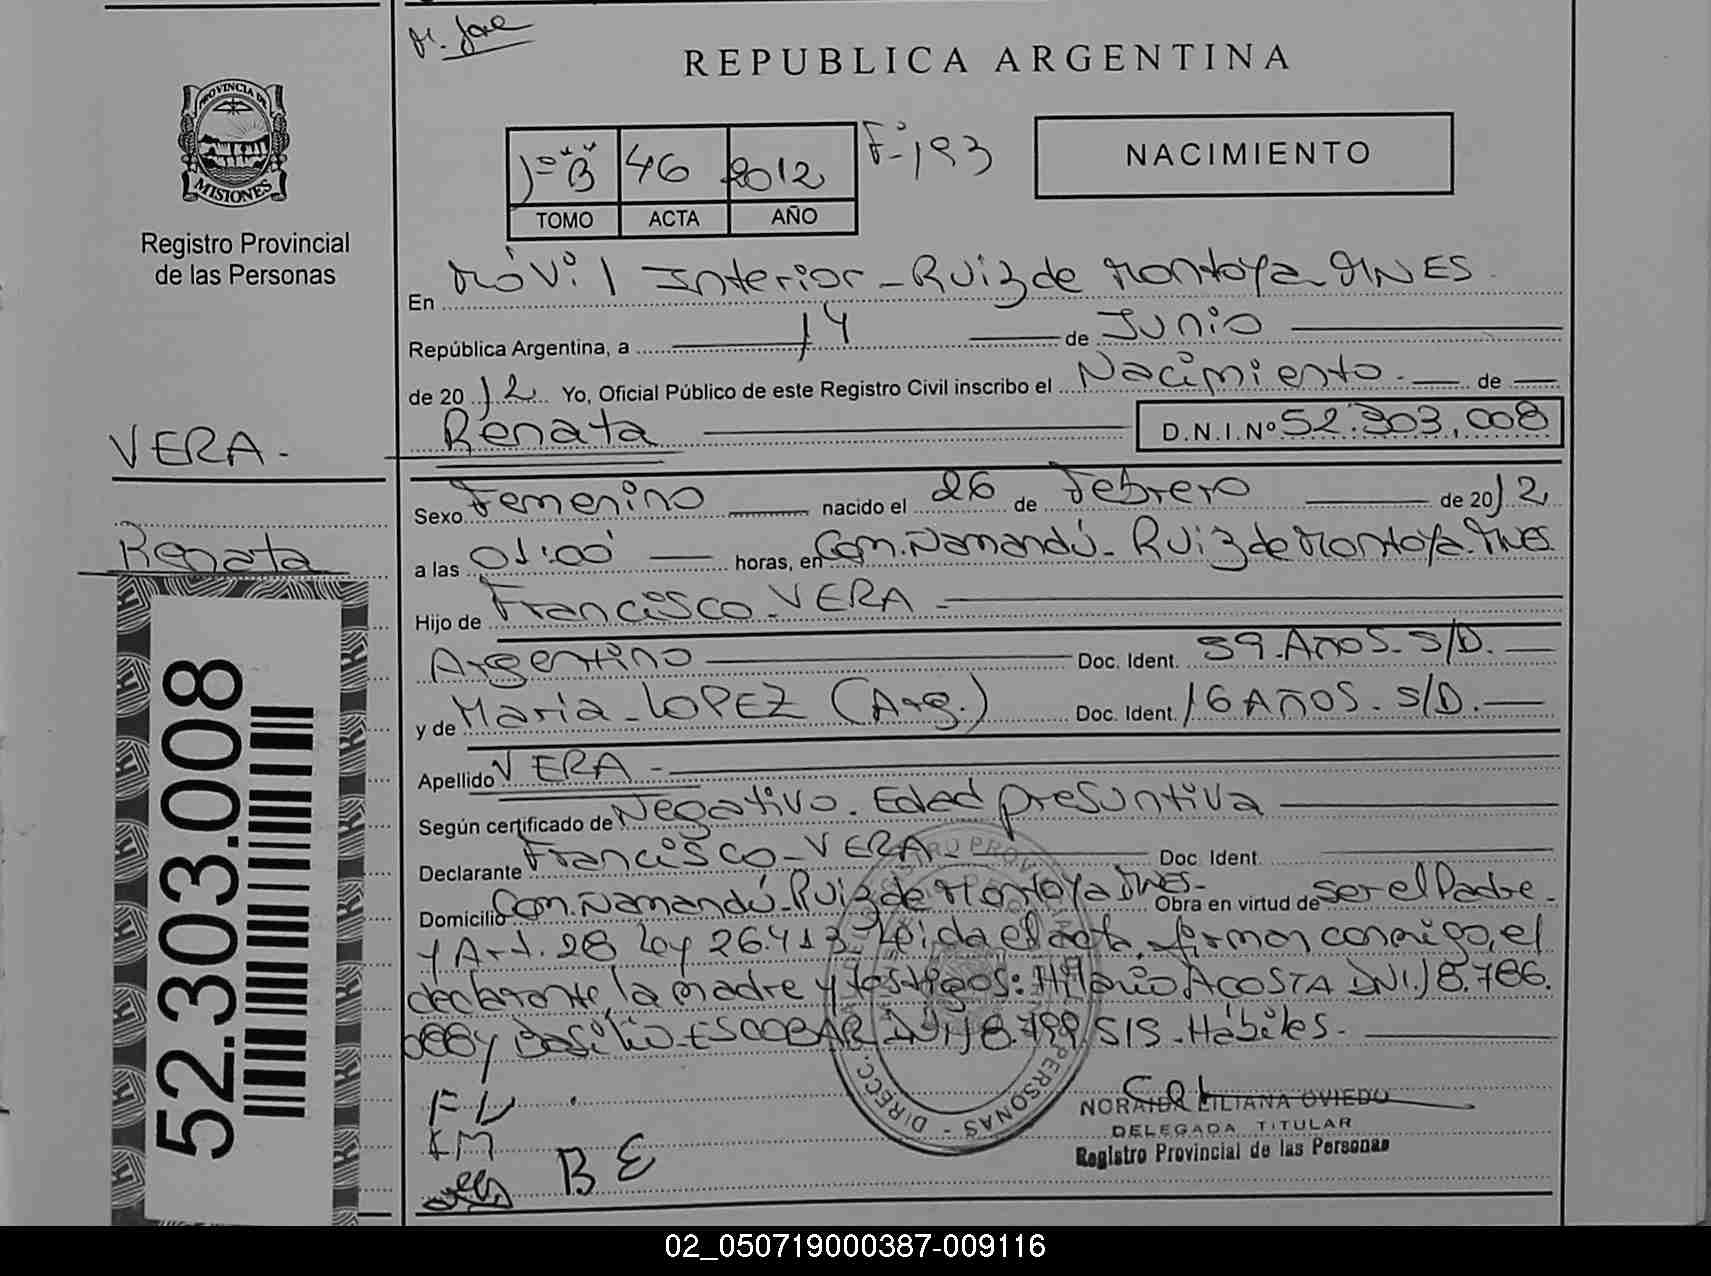 M. José
REPUBLICA ARGENTINA
PROVINCIA DE
MISIONES
Registro Provincial
de las Personas
1º "B" 46 2012 Fº-193
TOMO ACTA AÑO
NACIMIENTO
En Móvil Interior - Ruiz de Montoya MNES.
República Argentina, a 14 de Junio
de 2012 Yo, Oficial Público de este Registro Civil inscribo el Nacimiento. de
Renata D.N.I.Nº 52.303.008
VERA.-
Renata
52.303.008
Sexo Femenino nacido el 26 de Febrero de 2012
a las 01:00 horas, en Com. Ñamandú - Ruiz de Montoya - MNES.
Hijo de Francisco - VERA -
Argentino Doc. Ident. 39 Años. S/D.
y de María - LOPEZ (Arg.) Doc. Ident. 16 Años. S/D.
Apellido VERA -
Según certificado de Negativo. Edad presuntiva
Declarante Francisco - VERA - Doc. Ident.
Domicilio Com. Ñamandú - Ruiz de Montoya MNES - Obra en virtud de ser el Padre -
y Art. 28 Ley 26.413. Leída el acta, firman conmigo, el
declarante, la madre y testigos: Hilario ACOSTA DNI 18.786.
y Basilio ESCOBAR DNI 18.799.515 - Hábiles -
FV
B E
DIRECC. PERSONAS
NORAIDA LILIANA OVIEDO
DELEGADA TITULAR
Registro Provincial de las Personas
02_050719000387-009116